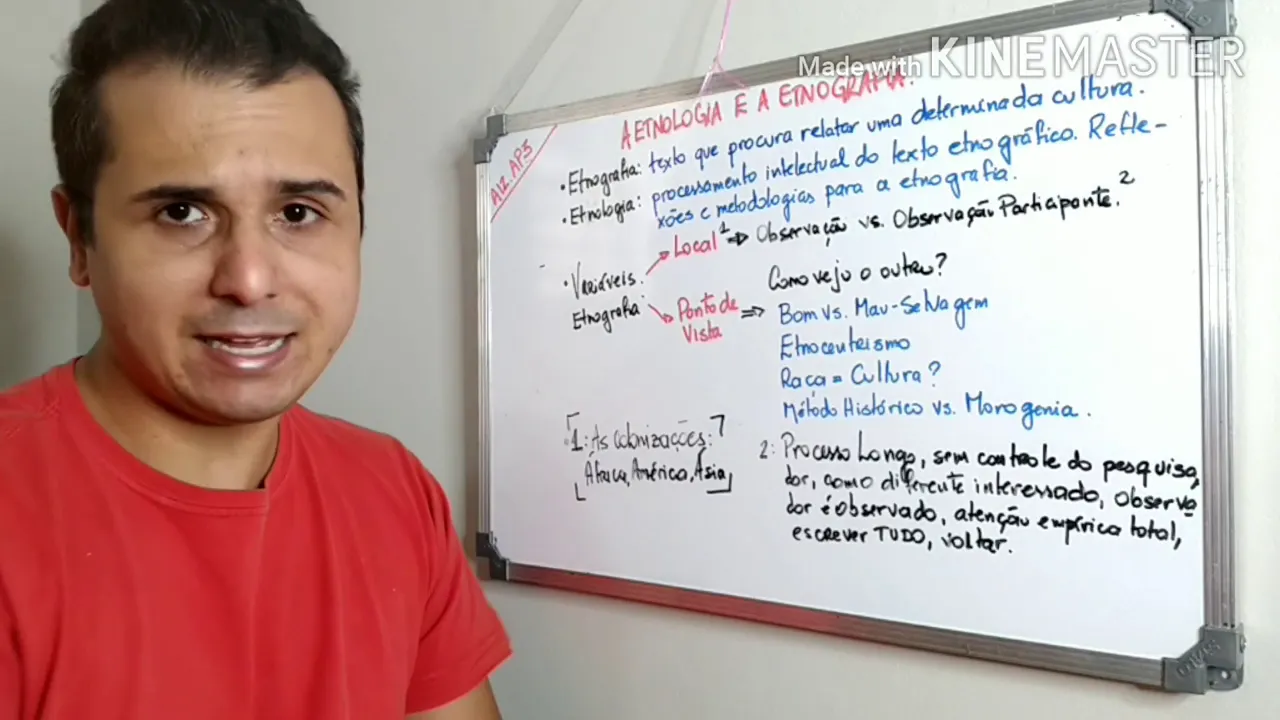 Made with KINEMASTER
A12.AP3
A ETNOLOGIA E A ETNOGRAFIA.
• Etnografia: texto que procura relatar uma determinada cultura.
• Etnologia: processamento intelectual do texto etnográfico. Refle-
xões e metodologias para a etnografia.
• Variáveis
Etnografia
Local ¹ => Observação vs. Observação Participante. ²
Ponto de
Vista =>
Como vejo o outro?
Bom vs. Mau-Selvagem
Etnocentrismo
Raça = Cultura?
Método Histórico vs. Morogenia.
1: As colonizações:
África, América, Ásia
2: Processo Longo, sem controle do pesquisa
dor, como diferente interessado, observa
dor é observado, atenção empírica total,
escrever TUDO, voltar.